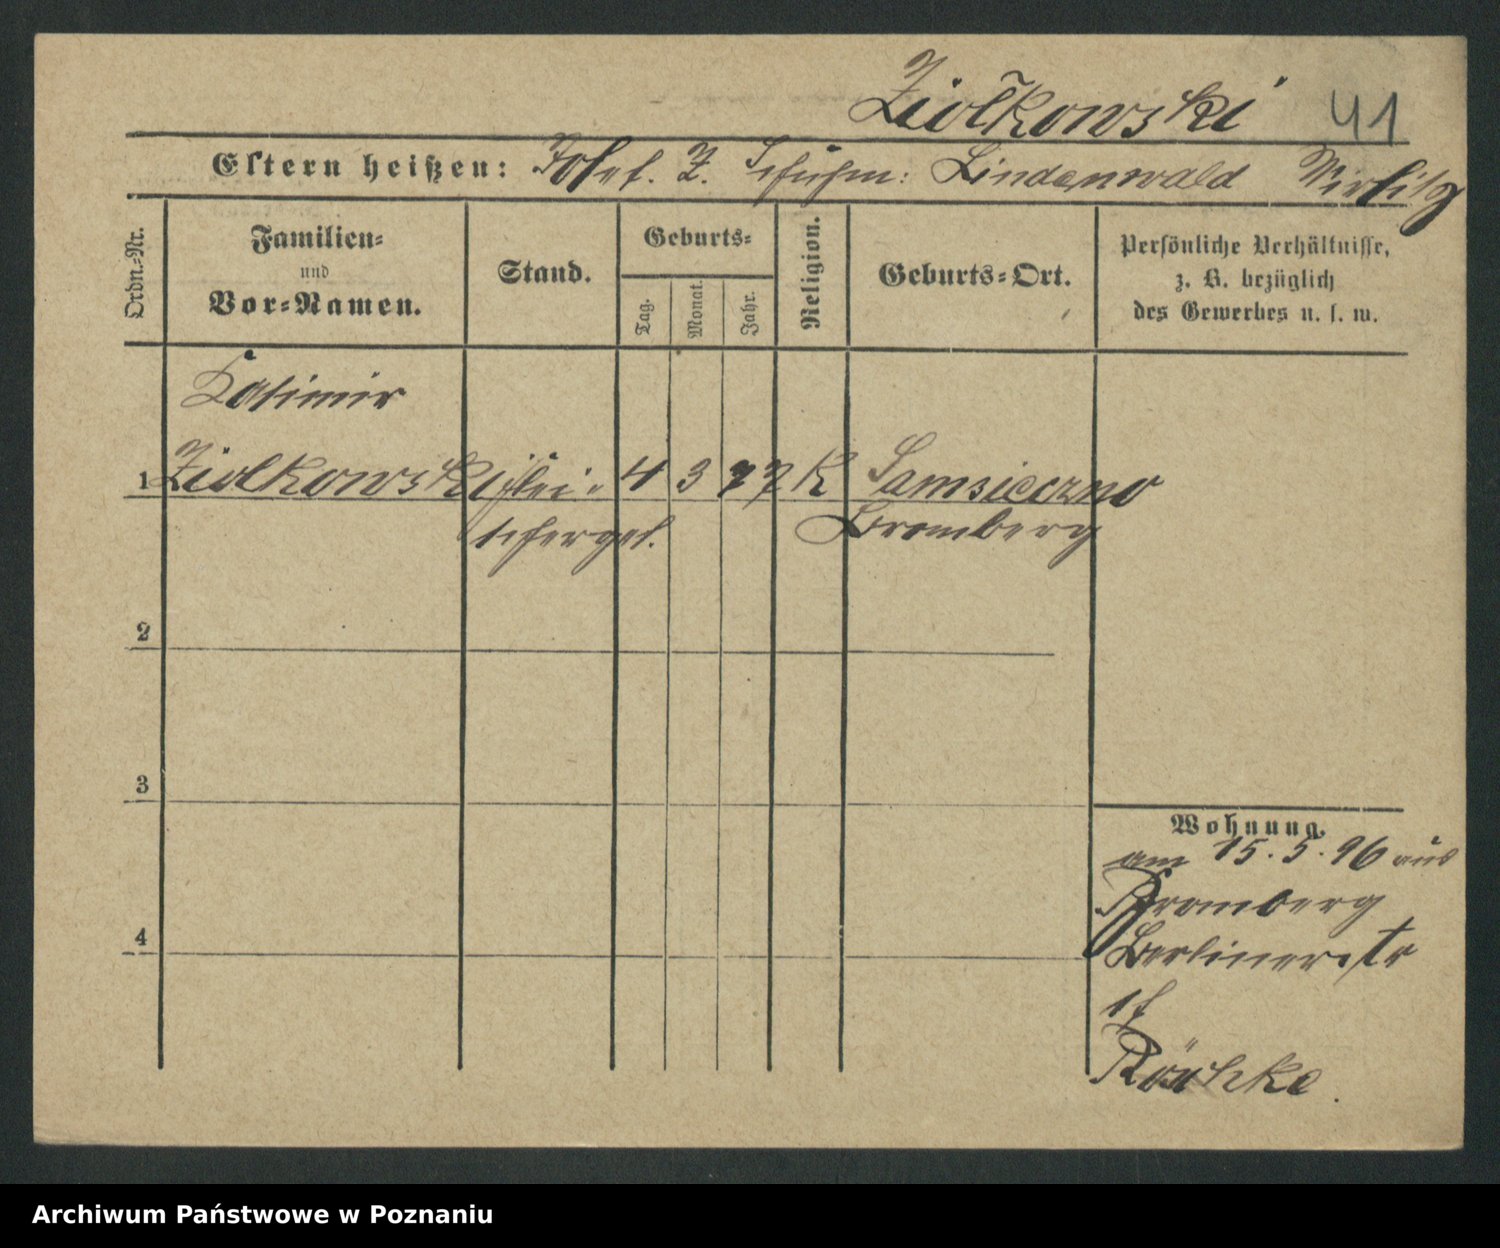 Ziołkowski 41
Eltern heißen: Josef. Z. Schuhm: Lindenwald Wirsitz
Ordn.-Nr.
Familien-
und
Vor-Namen.
Stand.
Geburts-
Tag.
Monat.
Jahr.
Religion.
Geburts-Ort.
Persönliche Verhältnisse,
z. B. bezüglich
des Gewerbes u. s. w.
Kasimir
1 Ziolkowski Flei- 4 3 77 K Samsieczno
schergs. Bromberg
2
3
4
Wohnung.
am 15.5.96 aus
Bromberg
Berlinerstr
Röschke
Archiwum Państwowe w Poznaniu